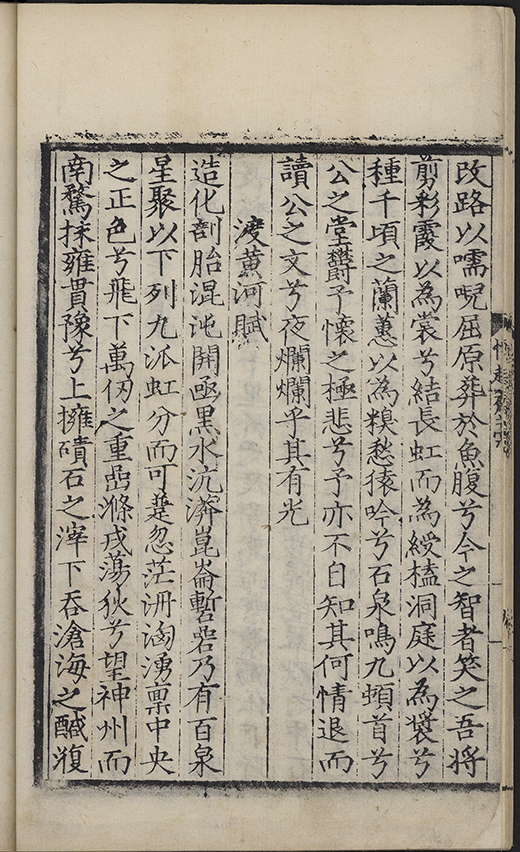 改路以嚅唲屈原葬於魚腹兮今之智者笑之吾將
剪彩霞以為裳兮結長虹而為綬榼洞庭以為漿兮
種千頃之蘭蕙以為糗愁猿吟兮石泉鳴九頓首兮
公之堂欝予懷之極悲兮予亦不自知其何情退而
讀公之文兮夜爛爛乎其有光
渡黃河賦
造化剖胎混沌開亟黑水沆漭崑崙暫砦乃有百泉
星聚以下列九派虹分而可躄忽茫洲洶湧稟中央
之正色兮飛下萬仞之重嵒滌戎蕩狄兮望神州而
南騖抹雍貫豫兮上擁磧石之滓下吞滄海之醎澓